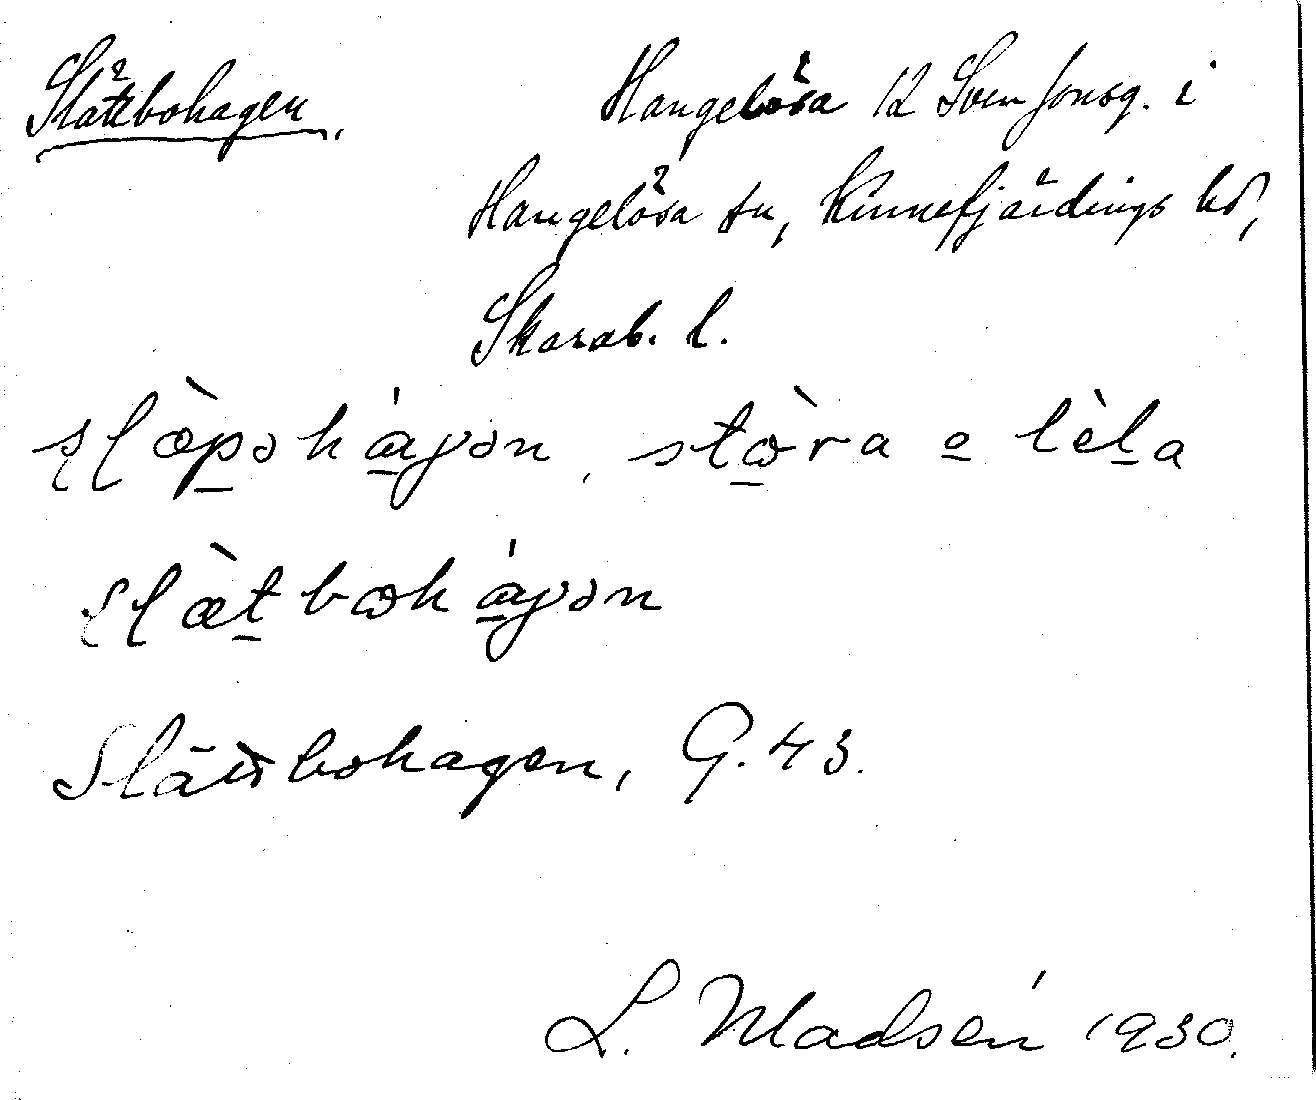 Slättbohagen. Hangelösa 12 Svensonsg. i
Hangelösa sn, Kinnefjärdings hd,
Skarab. l.
slæ̀pəhágən, stòra o lèla
slæ̀tbohágən
Slättbohagen, G. 43.
L. Madsén 1930.